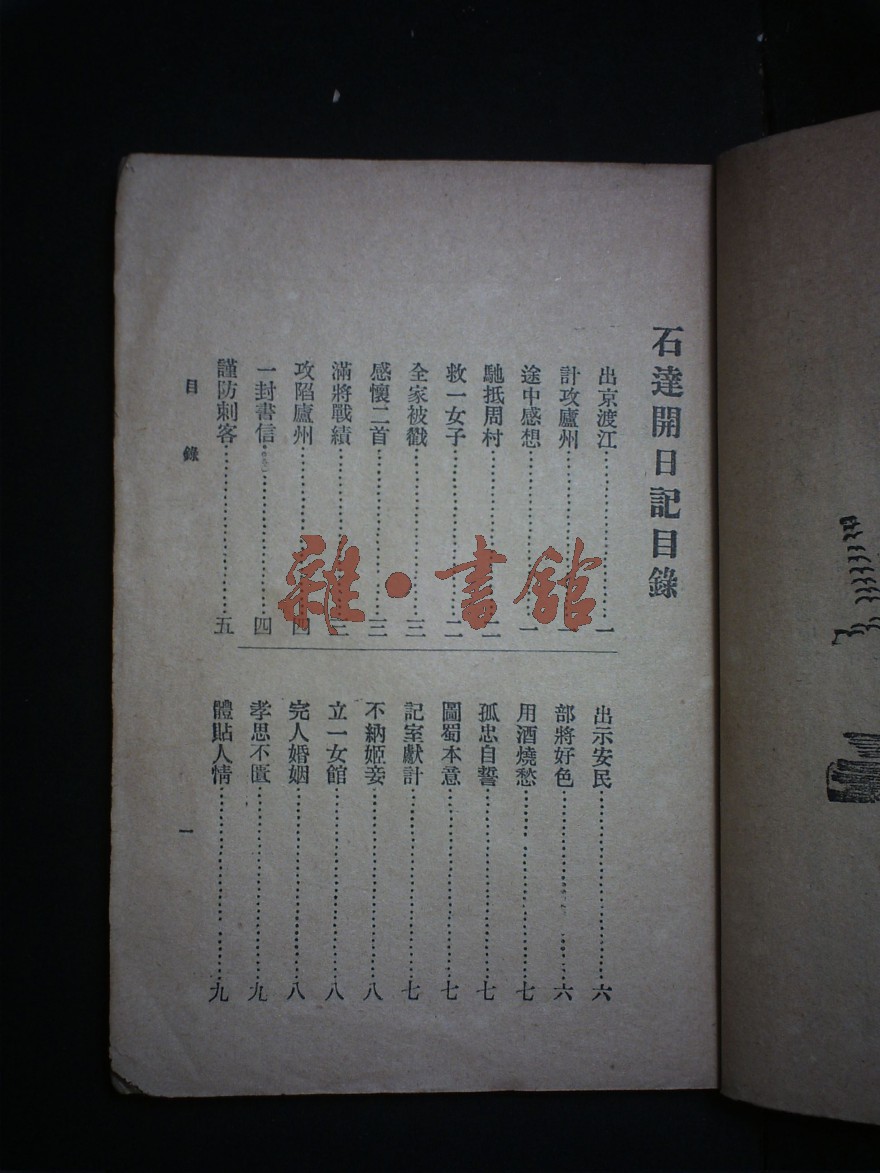 石達開日記目錄
出京渡江……………一
計攻廬州……………一
途中感想……………一
馳抵周村……………二
救一女子……………二
全家被戳……………三
感懷二首……………三
滿將戰績……………三
攻陷廬州……………四
一封書信……………四
謹防刺客……………五
出示安民……………六
部將好色……………六
用酒燒愁……………七
孤忠自誓……………七
圖蜀本意……………七
記室獻計……………七
不納姬妾……………八
立一女館……………八
完人婚姻……………八
孝思不匱……………九
體貼人情……………九
目錄
一
雜·書館